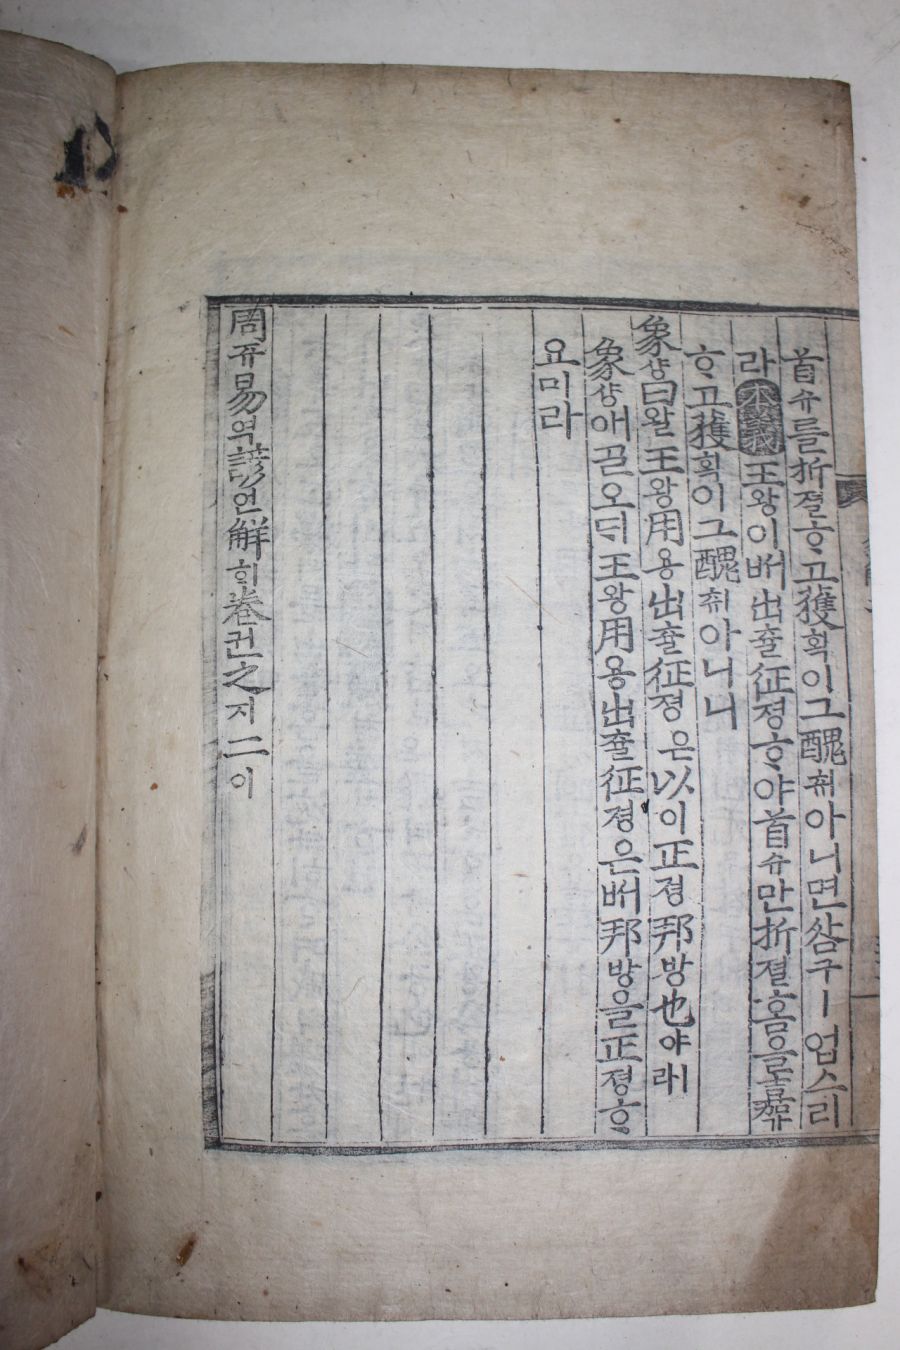 首슈를折졀ᄒᆞ고獲획이그醜츄ㅣ아니면咎구ㅣ업스리
라本義王왕이ᄡᅥ出츌征졍ᄒᆞ야首슈만折졀홈을
ᄒᆞ고獲획이그醜츄ㅣ아니니
象샹曰왈王왕用용出츌征졍은以이正졍邦방也야ㅣ라
象샹애ᄀᆞᆯ오ᄃᆡ王왕用용出츌征졍은ᄡᅥ邦방을正졍ᄒᆞ
요미라
周쥬易역諺언解ᄒᆡ卷권之지二이